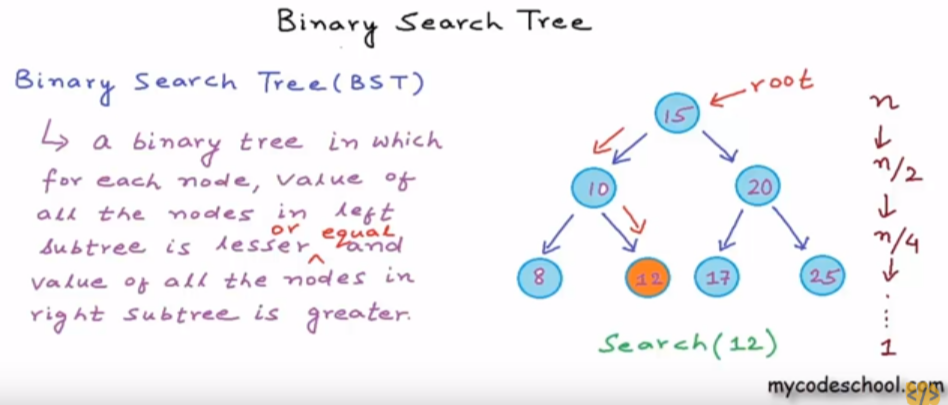 Binary Search Tree
Binary Search Tree (BST)
↳ a binary tree in which
for each node, value of
all the nodes in left
or equal
subtree is lesser ^ and
value of all the nodes in
right subtree is greater.
root
15
10
20
8
12
17
25
Search(12)
n
↓
n/2
↓
n/4
↓
⋮
1
mycodeschool.com
</>